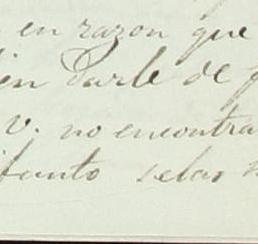 en razon que
ien darle de
V. no encontra
tanto selas